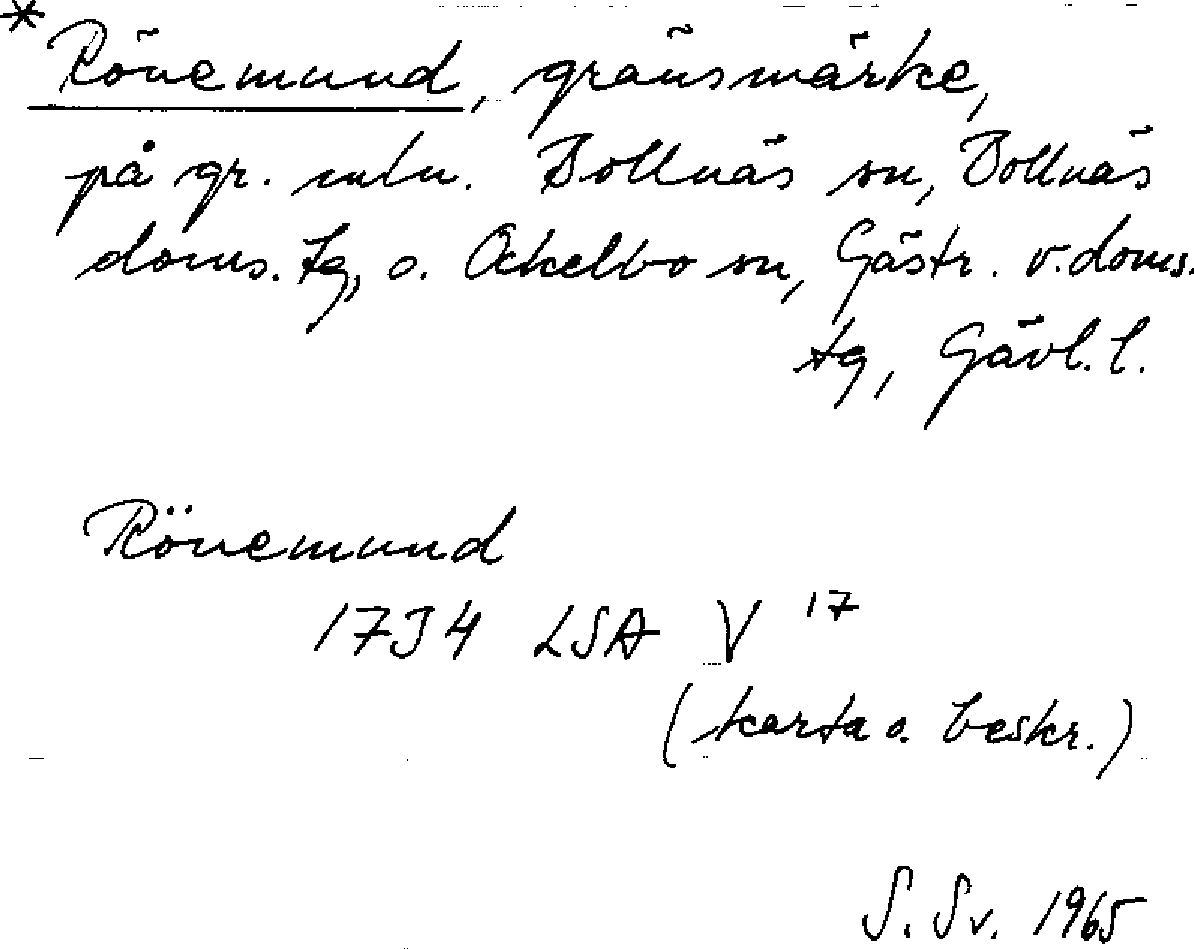 * Rönemund, gränsmärke,
på gr. mln. Bollnäs sn, Bollnäs
doms. tg, o. Ockelbo sn, Gästr. v. doms.
tg, Gävl. l.
Rönemund
1734 LSA V 17
(karta o. beskr.)
S. Sv. 1965